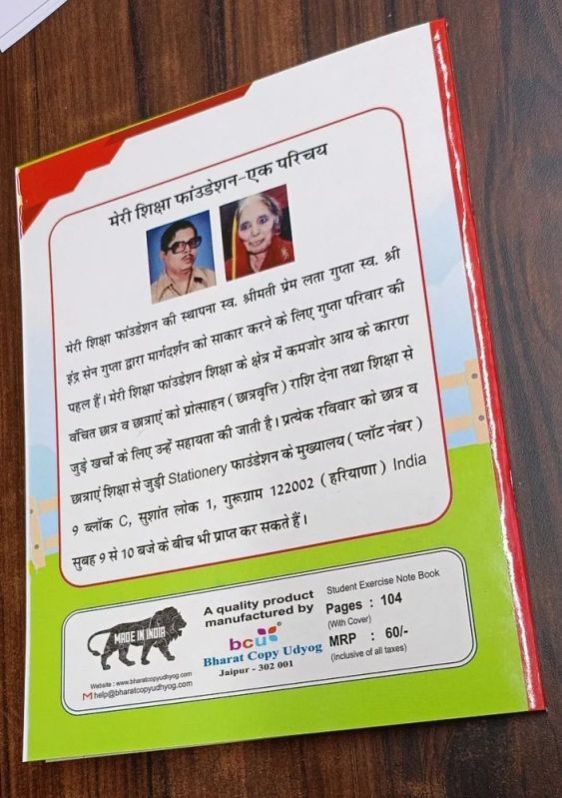 मेरी शिक्षा फांउडेशन-एक परिचय
मेरी शिक्षा फांउडेशन की स्थापना स्व. श्रीमती प्रेम लता गुप्ता स्व. श्री
इंद्र सेन गुप्ता द्वारा मार्गदर्शन को साकार करने के लिए गुप्ता परिवार की
पहल हैं। मेरी शिक्षा फांउडेशन शिक्षा के क्षेत्र में कमजोर आय के कारण
वंचित छात्र व छात्राएं को प्रोत्साहन ( छात्रवृत्ति ) राशि देना तथा शिक्षा से
जुड़े खर्चों के लिए उन्हें सहायता की जाती है। प्रत्येक रविवार को छात्र व
छात्राएं शिक्षा से जुड़ी Stationery फाउंडेशन के मुख्यालय ( प्लॉट नंबर )
9 ब्लॉक C, सुशांत लोक 1, गुरूग्राम 122002 ( हरियाणा ) India
सुबह 9 से 10 बजे के बीच भी प्राप्त कर सकते हैं।
MADE IN INDIA
Website : www.bharatcopyudhyog.com
help@bharatcopyudhyog.com
A quality product
manufactured by
bcu®
Bharat Copy Udyog
Jaipur - 302 001
Student Exercise Note Book
Pages : 104
(With Cover)
MRP : 60/-
(Inclusive of all taxes)